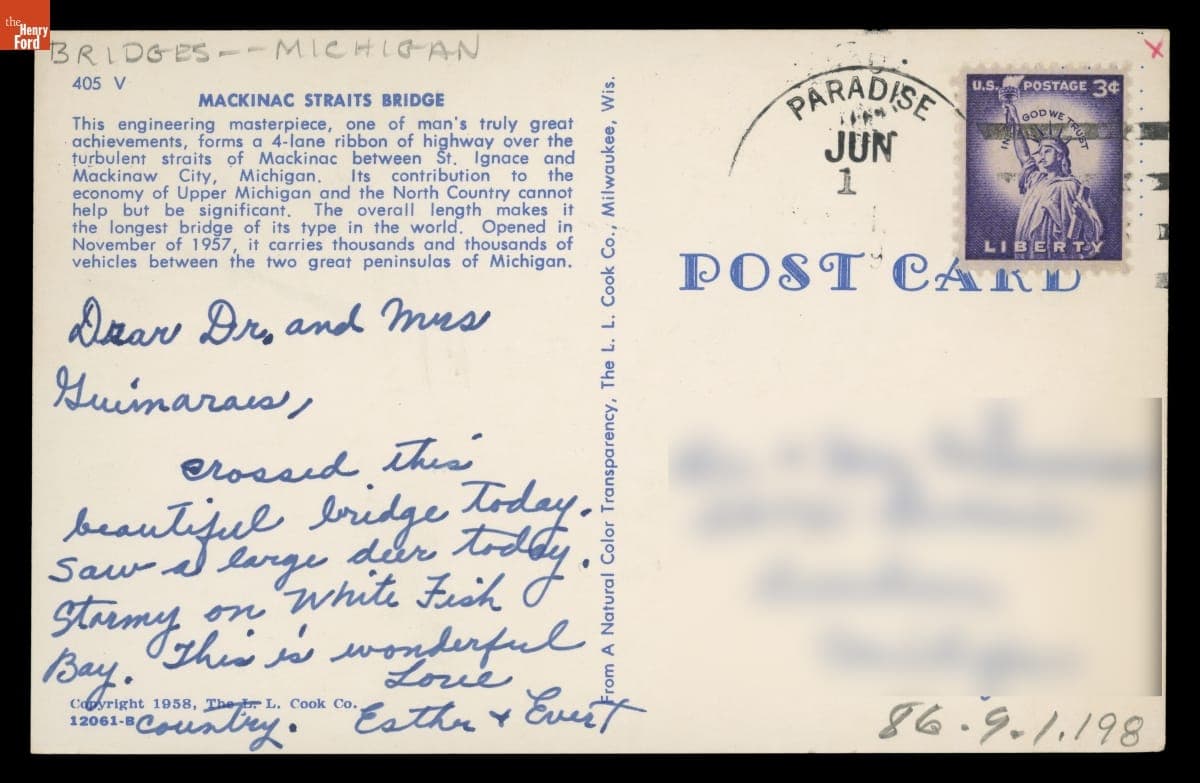 the
Henry
Ford
BRIDGES--MICHIGAN
405 V
MACKINAC STRAITS BRIDGE
This engineering masterpiece, one of man's truly great
achievements, forms a 4-lane ribbon of highway over the
turbulent straits of Mackinac between St. Ignace and
Mackinaw City, Michigan. Its contribution to the
economy of Upper Michigan and the North Country cannot
help but be significant. The overall length makes it
the longest bridge of its type in the world. Opened in
November of 1957, it carries thousands and thousands of
vehicles between the two great peninsulas of Michigan.
Dear Dr. and Mrs
Guimaraes,
crossed this
beautiful bridge today.
Saw a large deer today.
Stormy on White Fish
Bay. This is wonderful
country.
Love
Esther & Evert
Copyright 1958, The L. L. Cook Co.
12061-B
From A Natural Color Transparency, The L. L. Cook Co., Milwaukee, Wis.
PARADISE
JUN
1
U.S. POSTAGE 3¢
IN GOD WE TRUST
LIBERTY
POST CARD
x
86.9.1.198